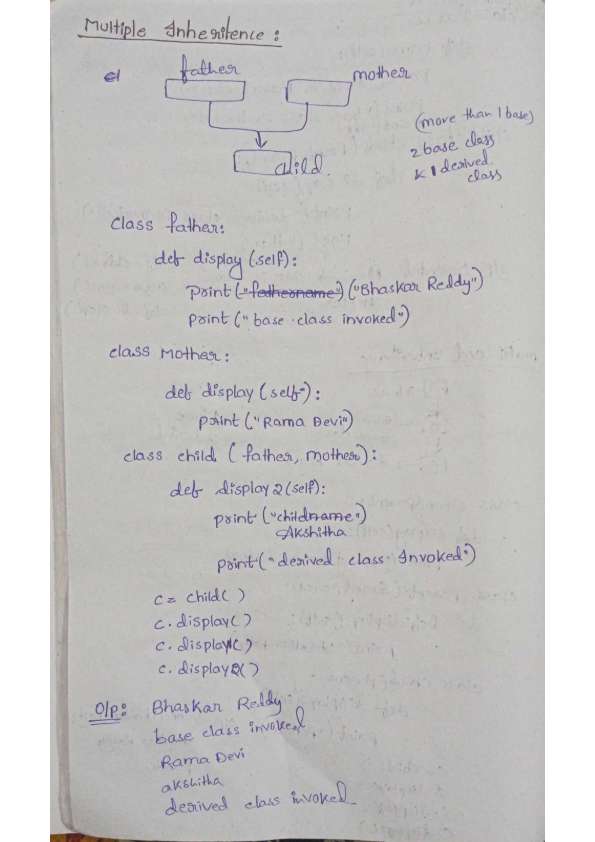 Multiple Inheritence :
el
father
mother
child.
(more than 1 base)
2 base class
& 1 derived
class
class father:
def display (self):
print ("fathername") ("Bhaskar Reddy")
print (" base class invoked")
class Mother :
def display (self):
print ("Rama Devi")
class child ( father, mother):
def display 2 (self):
print ("childname")
Akshitha
print (" derived class Invoked")
c = child ( )
c. display ( )
c. display1( )
c. display2( )
O/p: Bhaskar Reddy
base class invoked
Rama Devi
akshitha
derived class invoked